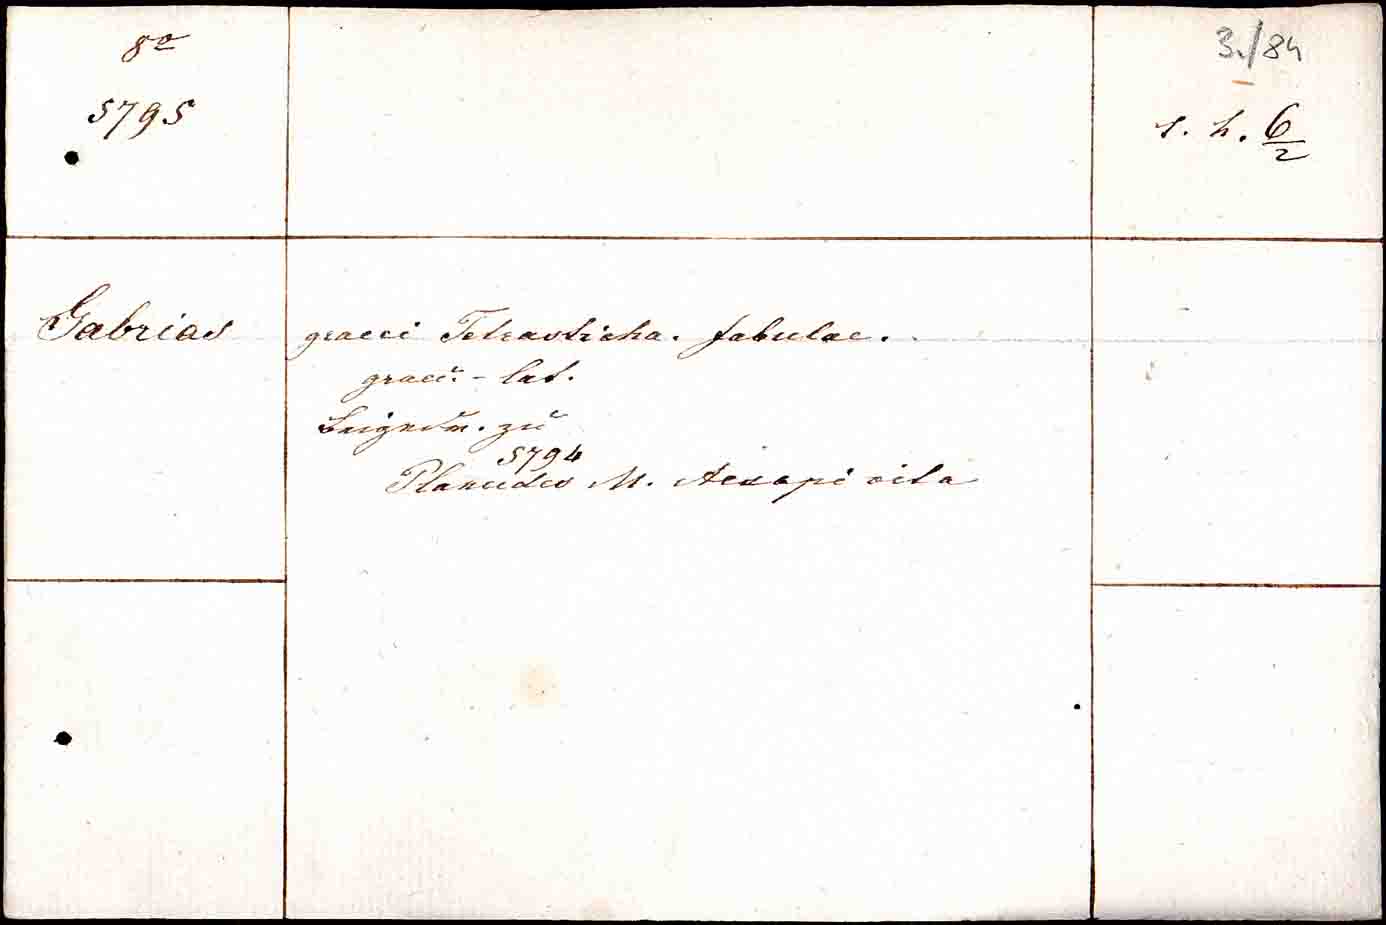 8o
5795
3./84
s. h. 6/2
Gabrias graeci Tetrasticha. fabulae.
graec. - lat.
Beigedr. zu
5794
Planudes M. Aesopi vita